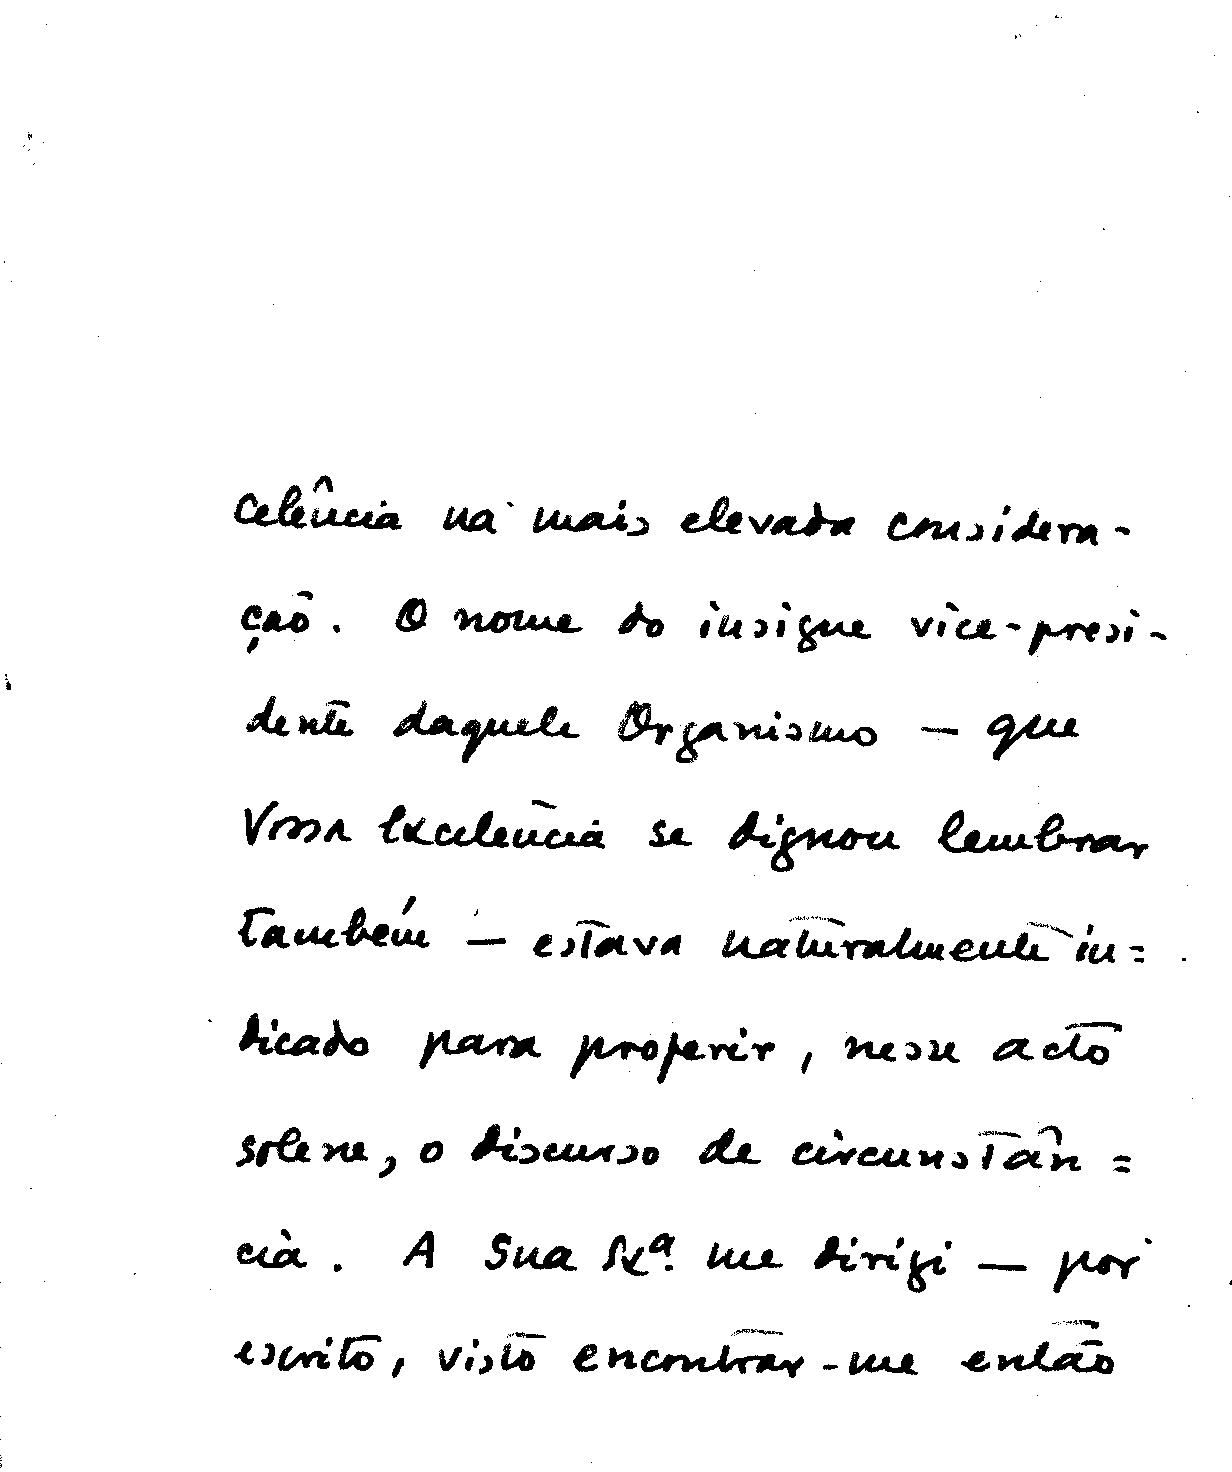 celência na mais elevada considera-
ção. O nome do insigne vice-presi-
dente daquele Organismo — que
Vossa Excelência se dignou lembrar
também — estava naturalmente in=
dicado para proferir, nesse acto
solene, o discurso de circunstân=
cia. A Sua Exª. me dirigi — por
escrito, visto encontrar-me então